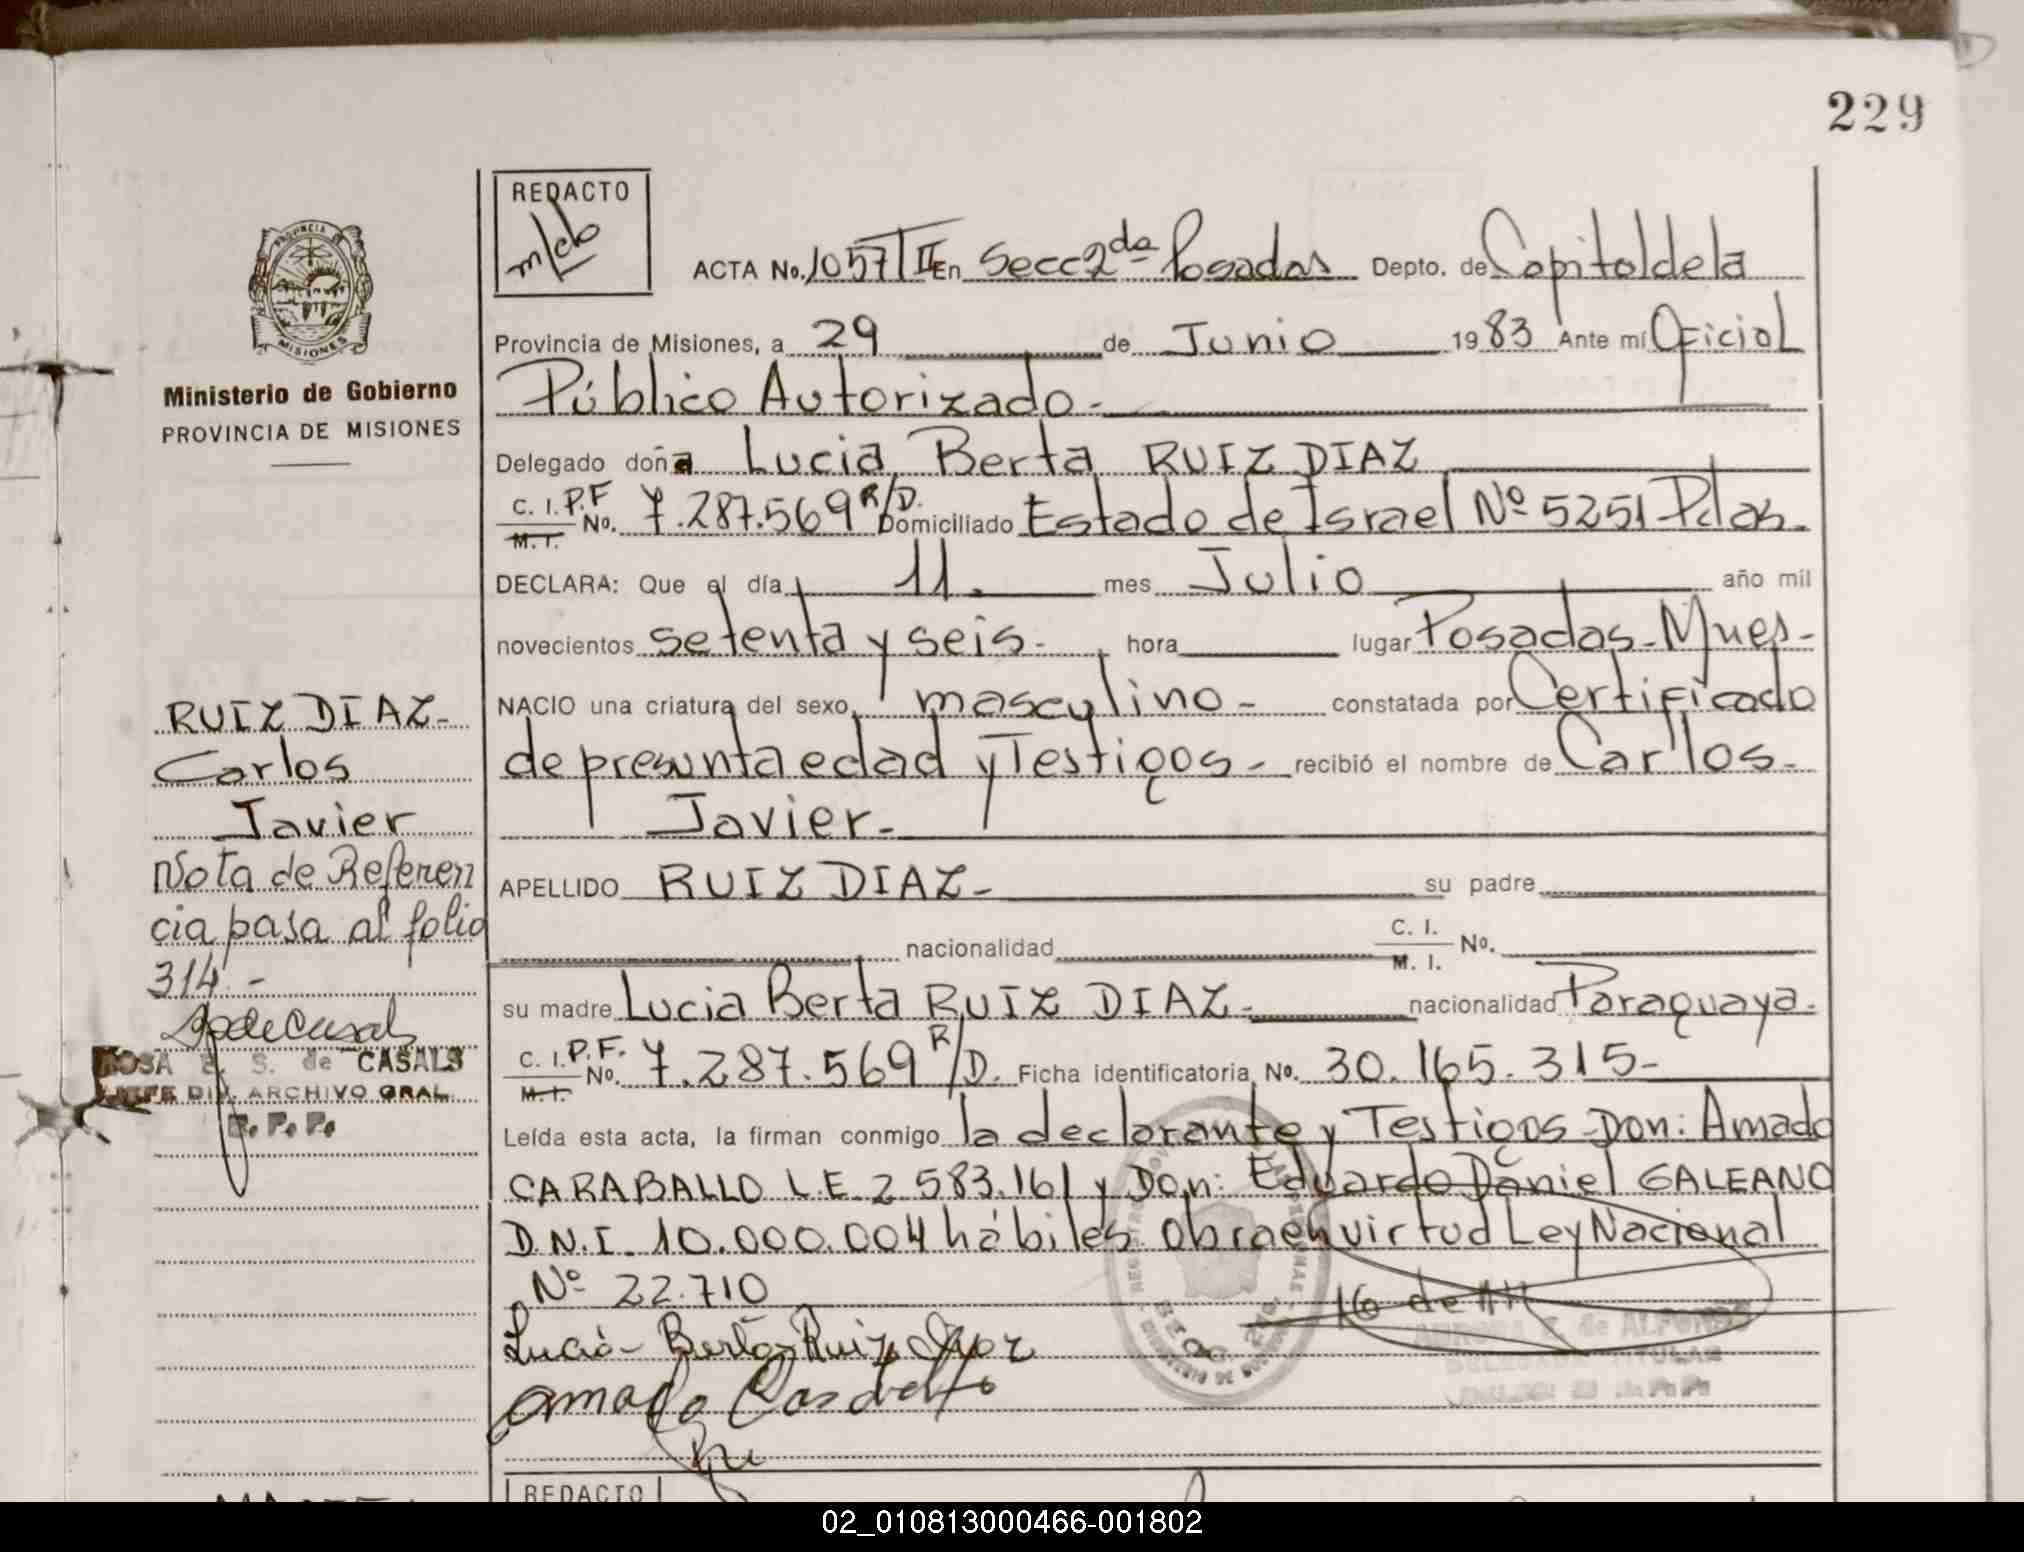 229
REDACTO
ACTA No. 1057 T II En Secc 2da Posadas Depto. de Capital de la
Provincia de Misiones, a 29 de Junio 1983 Ante mí Oficial
Público Autorizado.-
Delegado doña Lucia Berta RUIZ DIAZ
C. I. P.F
M. I. No. 7.287.569 R/D. Domiciliado Estado de Israel Nº 5251 Pdas.
DECLARA: Que el día 11. mes Julio año mil
novecientos setenta y seis.- hora lugar Posadas-Mnes-
NACIO una criatura del sexo masculino - constatada por Certificado
de presunta edad y Testigos - recibió el nombre de Carlos.
Javier.-
APELLIDO RUIZ DIAZ.- su padre
nacionalidad C. I. No.
M. I.
su madre Lucia Berta RUIZ DIAZ.- nacionalidad Paraguaya.
C. I. P.F.
M. I. No. 7.287.569 R/D. Ficha identificatoria No. 30.165.315-
Leída esta acta, la firman conmigo la declarante y Testigos Don: Amado
CARABALLO L.E. 2 583.161 y Don: Eduardo Daniel GALEANO
D.N.I. 10.000.004 hábiles. Obra en virtud Ley Nacional
Nº 22.710
Lucia Berta Ruiz Diaz
PROVINCIA
MISIONES
Ministerio de Gobierno
PROVINCIA DE MISIONES
RUIZ DIAZ-
Carlos
Javier
Nota de Referen
cia pasa al folio
314.-
ROSA E. S. de CASALS
JEFE DIV. ARCHIVO GRAL.
R. P. P.
DELEGADA TITULAR
REDACTO
02_010813000466-001802